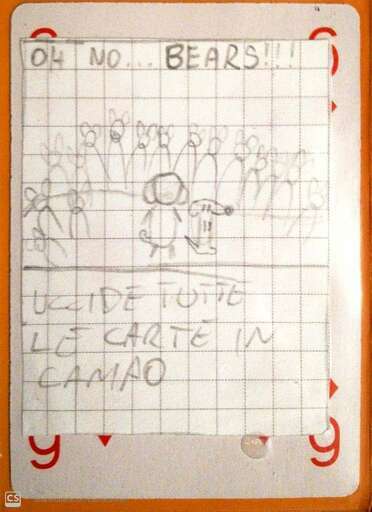 OH NO... BEARS!!!
UCCIDE TUTTE
LE CARTE IN
CAMPO
6
6
CS